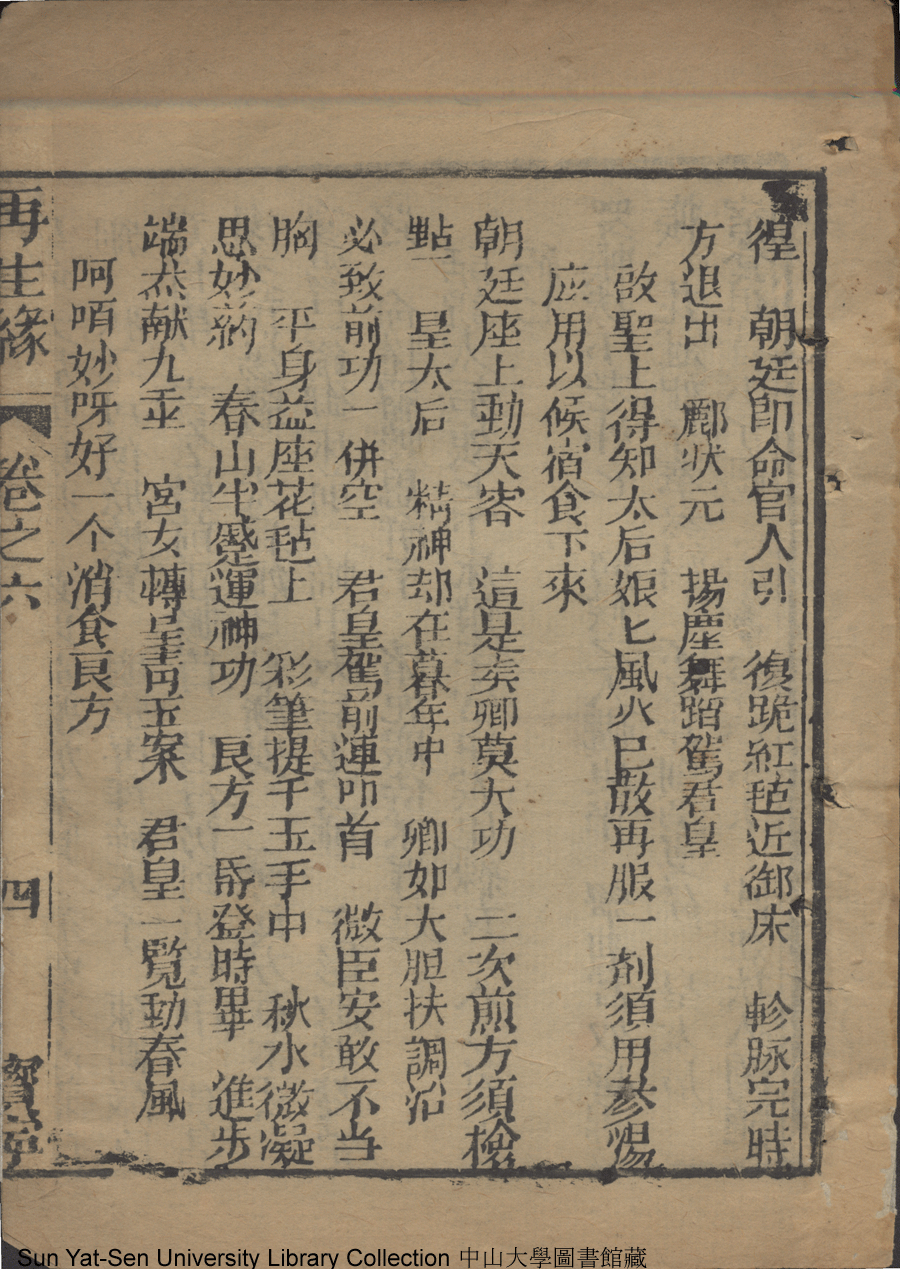 徨　朝廷即命官人引　復跪紅毡近御床　軫脉完時
方退出　酈状元　揚塵舞蹈駕君皇
啟聖上得知太后娘匕風火已散再服一剂須用參湯
应用以候宿食下來
朝廷座上動天容　這是奏卿莫大功　二次煎方須檢
點　皇太后　精神却在暮年中　卿如大胆扶調治
必致前功一併空　君皇駕前連叩首　微臣安敢不当
胸　平身益座花毡上　彩筆提千玉手中　秋水微凝
思妙葯　春山半蹙運神功　良方一昏登時畢　進步
端杰献九重　宮女轉呈青玉案　君皇一覧動春風
呵唷妙呀好一个消食良方
再生緣　卷之六　四　寶寧
Sun Yat-Sen University Library Collection 中山大學圖書館藏